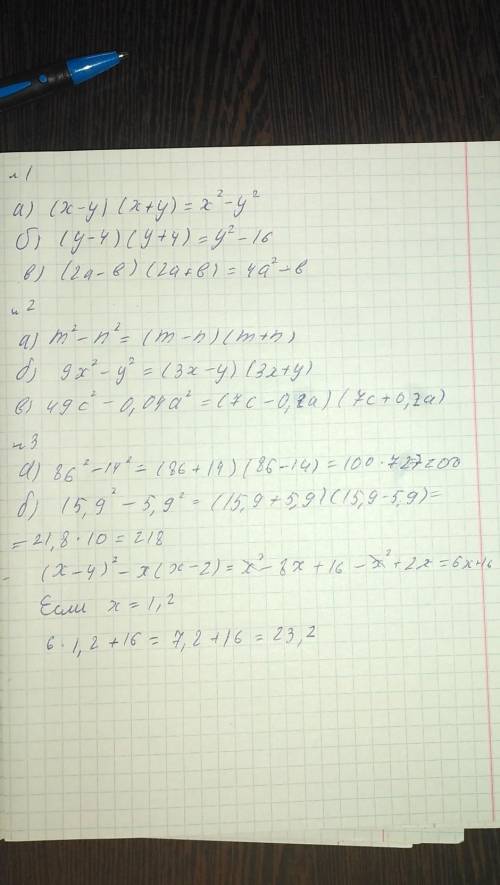 н 1
а) (x-y) (x+y) = x² - y²
б) (y-4) (y+4) = y² - 16
в) (2a-в) (2a+в) = 4a² - в
н 2
а) m² - n² = (m-n) (m+n)
б) 9x² - y² = (3x-y) (3x+y)
в) 49c² - 0,04a² = (7c-0,2a) (7c+0,2a)
н 3
а) 86² - 14² = (86+14) (86-14) = 100·72 = 7200
б) 15,9² - 5,9² = (15,9+5,9) (15,9-5,9) =
= 21,8 · 10 = 218
(x-4)² - x(x-2) = x² - 8x + 16 - x² + 2x = 6x+16
Если x = 1,2
6 · 1,2 + 16 = 7,2 + 16 = 23,2